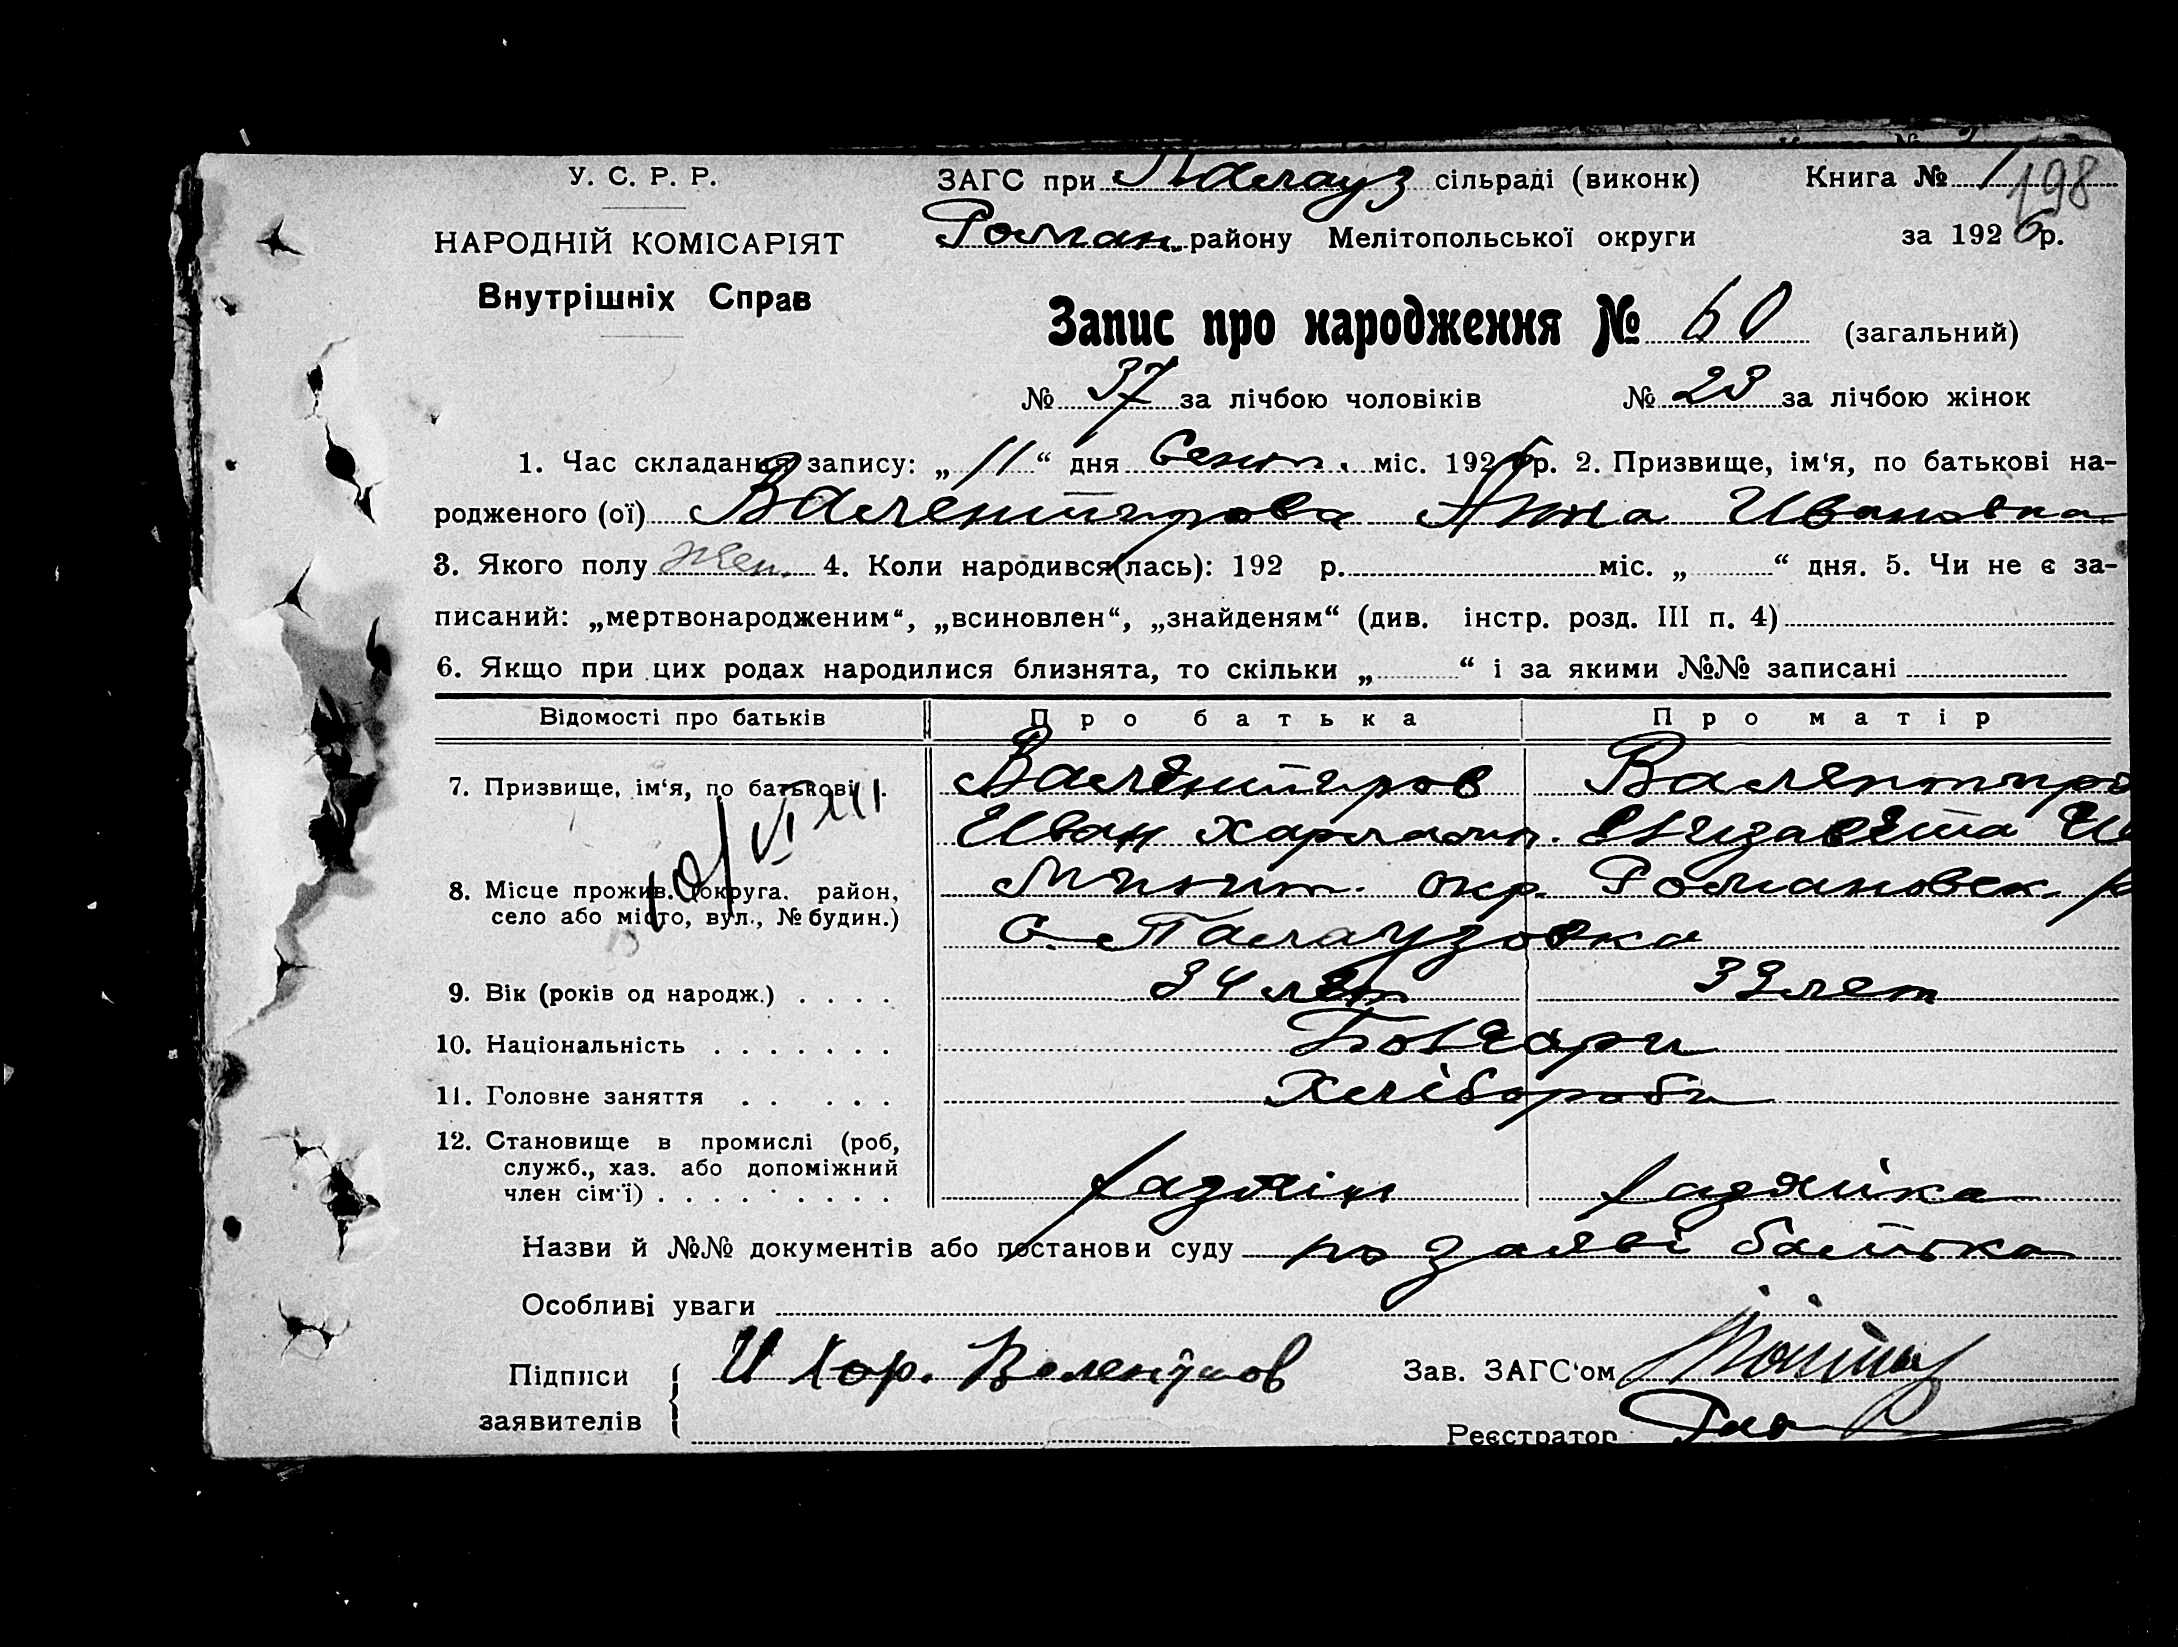 У. С. Р. Р.
НАРОДНІЙ КОМІСАРІЯТ
Внутрішніх Справ
ЗАГС при Палауз сільраді (виконк) Книга № 1
198
Роман. району Мелітопольської округи за 1926 р.
Запис про народження № 60 (загальний)
№ 37 за лічбою чоловіків № 23 за лічбою жінок
1. Час складання запису: „11“ дня Сент. міс. 1926 р. 2. Призвище, ім‘я, по батькові на-
родженого (ої) Валентирова Анна Ивановна
3. Якого полу жен. 4. Коли народився(лась): 192 р. міс. „ “ дня. 5. Чи не є за-
писаний: „мертвонародженим“, „всиновлен“, „знайденям“ (див. інстр. розд. III п. 4)
6. Якщо при цих родах народилися близнята, то скільки „ “ і за якими №№ записані
Відомості про батьків Про батька Про матір
7. Призвище, ім‘я, по батькові . Валентиров Валентиро
Иван Харламп. Елизавета И
10/VIII
8. Місце прожив. (округа, район, окр. Романовск. р
село або місто, вул., № будин.) с. Палаузовка
9. Вік (років од народж.) . . . . 34 лет 33 лет
10. Національність . . . . . . . Болгари
11. Головне заняття . . . . . Хлібороби
12. Становище в промислі (роб,
служб., хаз. або допоміжний
член сім‘ї) . . . . . . . . . хазяін хазяйка
Назви й №№ документів або постанови суду по заяві батька
Особливі уваги
Підписи И Хар. Зав. ЗАГС‘ом
заявителів
Реєстратор